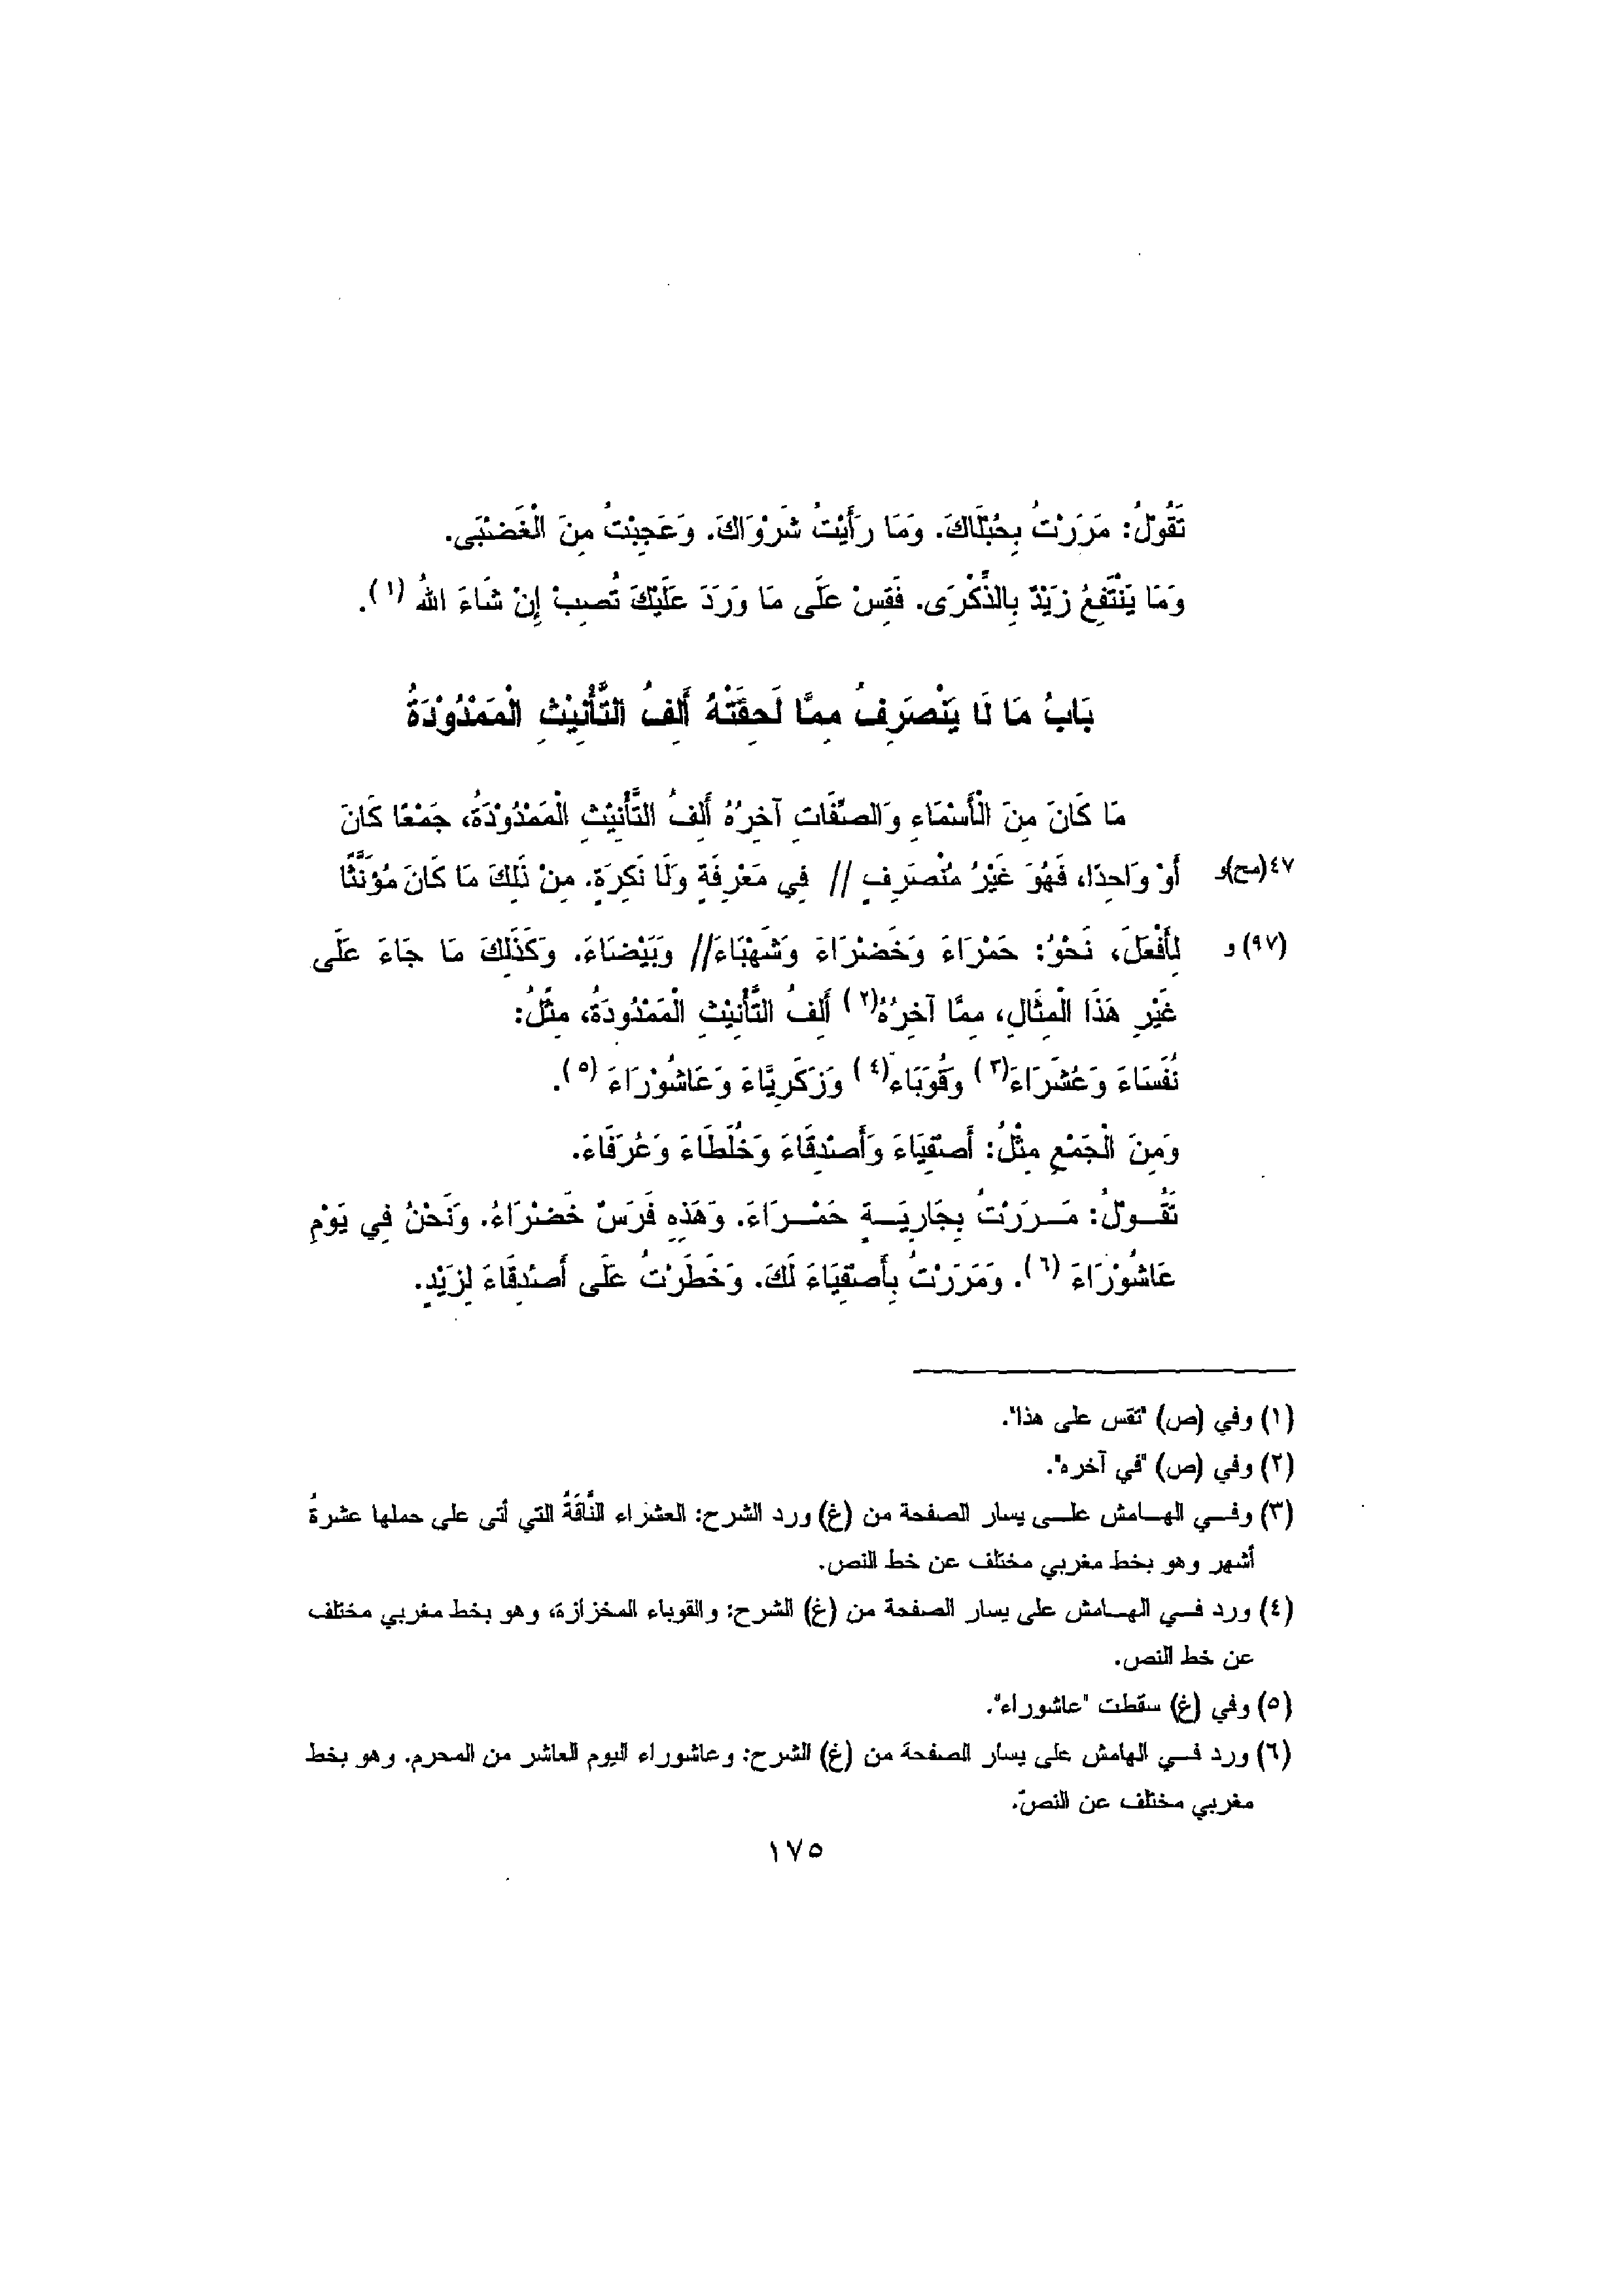 تَقُوْلُ: مَرَرْتُ بِحُبْلَاكَ. وَمَا رَأَيْتُ شَرْوَاكَ. وَعَجِبْتُ مِنَ الْغَضْبَى.
وَمَا يَنْتَفِعُ زَيْدٌ بِالذِّكْرَى. فَقِسْ عَلَى مَا وَرَدَ عَلَيْكَ تُصِبْ إِنْ شَاءَ اللهُ (١).
بَابُ مَا لَا يَنْصَرِفُ مِمَّا لَحِقَتْهُ أَلِفُ التَّأْنِيْثِ الْمَمْدُوْدَةُ
مَا كَانَ مِنَ الْأَسْمَاءِ وَالصِّفَاتِ آخِرُهُ أَلِفُ التَّأْنِيْثِ الْمَمْدُوْدَةُ، جَمْعًا كَانَ
٤٧(مح)و أَوْ وَاحِدًا، فَهُوَ غَيْرُ مُنْصَرِفٍ // فِي مَعْرِفَةٍ وَلَا نَكِرَةٍ. مِنْ ذَلِكَ مَا كَانَ مُؤَنَّثًا
(٩٧) و لِأَفْعَلَ، نَحْوُ: حَمْرَاءَ وَخَضْرَاءَ وَشَهْبَاءَ// وَبَيْضَاءَ. وَكَذَلِكَ مَا جَاءَ عَلَى
غَيْرِ هَذَا الْمِثَالِ، مِمَّا آخِرُهُ(٢) أَلِفُ التَّأْنِيْثِ الْمَمْدُودَةُ، مِثْلُ:
نُفَسَاءَ وَعُشَرَاءَ(٣) وَقُوَبَاء(٤) وَزَكَرِيَّاءَ وَعَاشُوْرَاءَ (٥).
وَمِنَ الْجَمْعِ مِثْلُ: أَصْفِيَاءَ وَأَصْدِقَاءَ وَخُلَطَاءَ وَعُرَفَاءَ.
تَقُـوْلُ: مَـرَرْتُ بِجَارِيَـةٍ حَمْـرَاءَ. وَهَذِهِ فَرَسٌ خَضْرَاءُ. وَنَحْنُ فِي يَوْمِ
عَاشُوْرَاءَ (٦). وَمَرَرْتُ بِأَصْفِيَاءَ لَكَ. وَخَطَرْتُ عَلَى أَصْدِقَاءَ لِزَيْدٍ.
(١) وفي (ص) "تقس على هذا".
(٢) وفي (ص) "في آخره".
(٣) وفـي الهـامش علـى يسار الصفحة من (غ) ورد الشرح: العشراء النَّاقَةُ التي أتى على حملها عشرةُ
أشهر وهو بخط مغربي مختلف عن خط النص.
(٤) ورد فـي الهـامش على يسار الصفحة من (غ) الشرح: والقوباء المخزازة، وهو بخط مغربي مختلف
عن خط النص.
(٥) وفي (غ) سقطت "عاشوراء".
(٦) ورد فـي الهامش على يسار الصفحة من (غ) الشرح: وعاشوراء اليوم العاشر من المحرم. وهو بخط
مغربي مختلف عن النصّ.
١٧٥